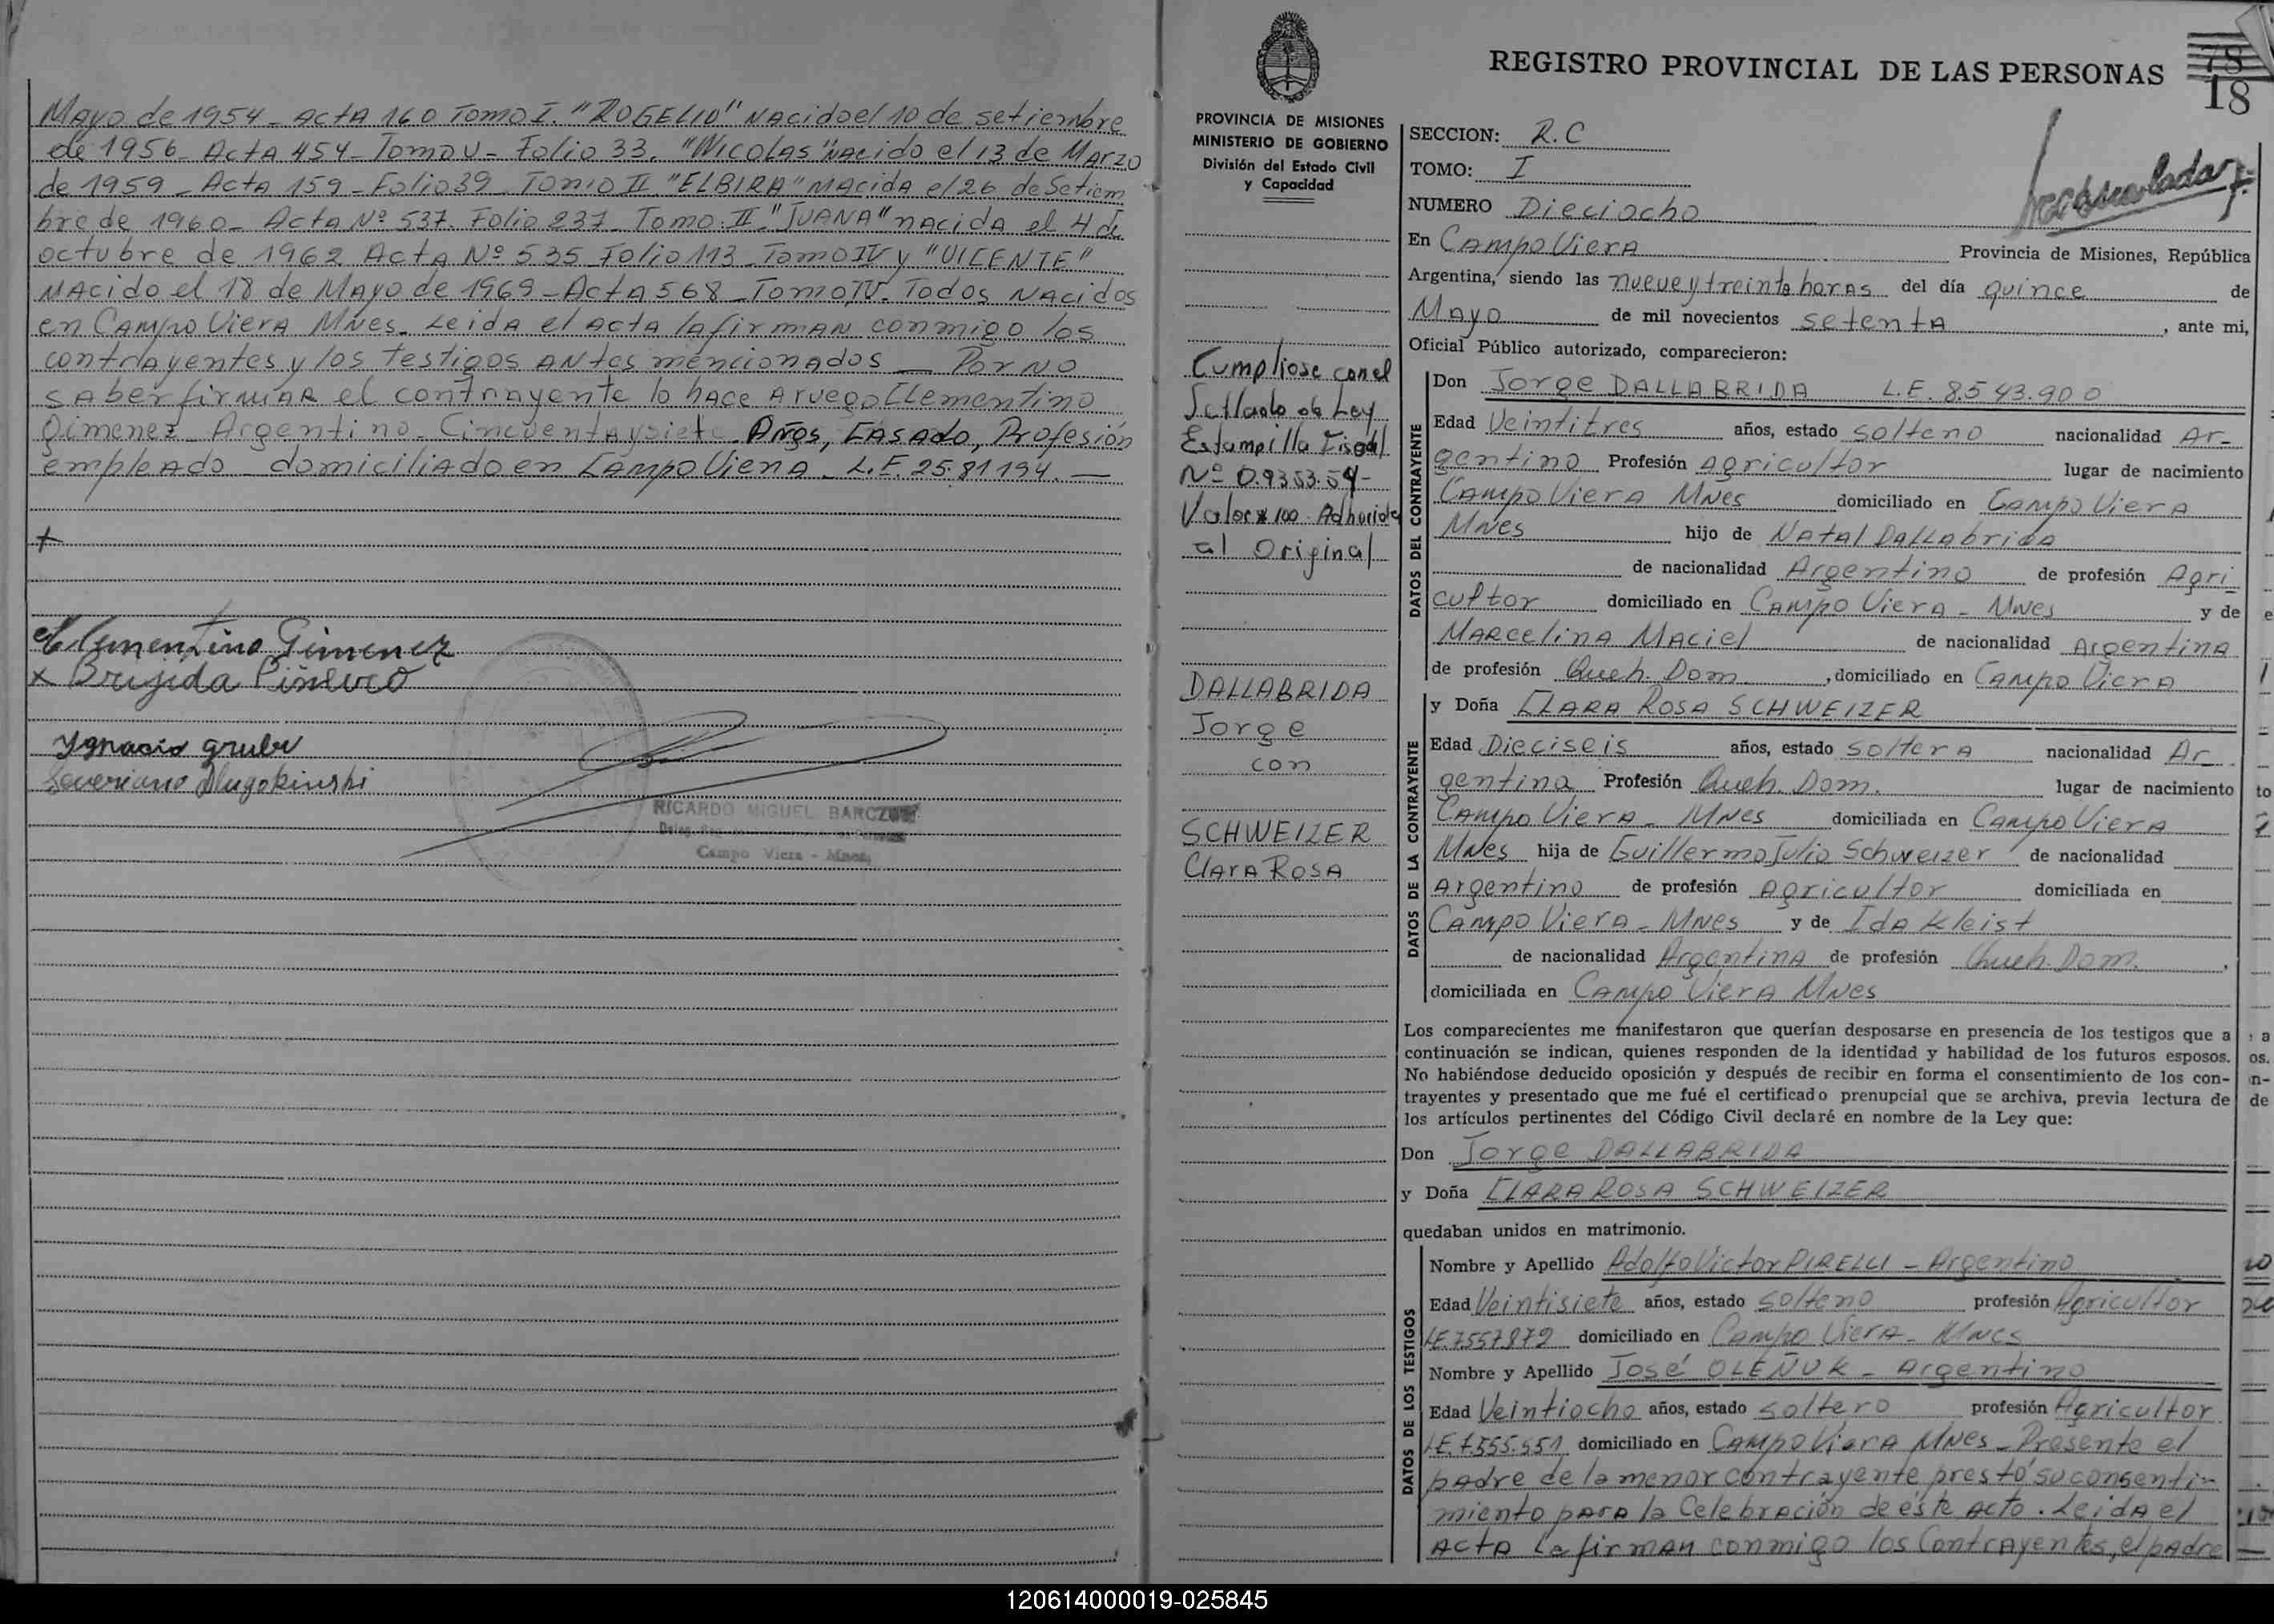 Mayo de 1954 - Acta 160 Tomo I. "ROGELIO" Nacido el 10 de setiembre
de 1956 - Acta 454 - Tomo V - Folio 33. "NICOLAS" nacido el 13 de Marzo
de 1959 - Acta 159 - Folio 39 Tomo II "ELBIRA" nacida el 26 de Setiem
bre de 1960 - Acta Nº 537. Folio 237 Tomo: II "JUANA" nacida el 4 de
octubre de 1962 Acta Nº 535 Folio 113 Tomo IV y "VICENTE"
Nacido el 18 de Mayo de 1969 - Acta 568 - Tomo IV. Todos Nacidos
en Campo Viera Mnes. Leida el acta la firman conmigo los
contrayentes y los testigos antes mencionados — Por no
saber firmar el contrayente lo hace a ruego Clementino
Gimenez - Argentino - Cincuenta y siete Años, Casado, Profesión
empleado domiciliado en Campo Viera - L.E. 25.81194. —
+
Clementino Gimenez
x Brijida Piñeiro
Ygnacio Gruber
Severiano Dlugokinski
RICARDO MIGUEL
Campo Viera - Mnes.
REGISTRO PROVINCIAL DE LAS PERSONAS
78
18
PROVINCIA DE MISIONES
MINISTERIO DE GOBIERNO
División del Estado Civil
y Capacidad
Cumpliose con el
Sellado de Ley
Estampilla Fiscal
Nº 0.9353.54-
Valor $ 100 Adherida
al Original
DALLABRIDA
Jorge
con
SCHWEIZER
Clara Rosa
SECCION: R.C
TOMO: I
NUMERO Dieciocho
En Campo Viera Provincia de Misiones, República
Argentina, siendo las nueve y treinta horas del día quince de
Mayo de mil novecientos setenta, ante mi,
Oficial Público autorizado, comparecieron:
DATOS DEL CONTRAYENTE
Don Jorge DALLABRIDA L.E. 8.543.900
Edad Veintitres años, estado soltero nacionalidad Ar-
gentino Profesión agricultor lugar de nacimiento
Campo Viera Mnes domiciliado en Campo Viera
Mnes hijo de Natal Dallabrida
de nacionalidad Argentino de profesión Agri
cultor domiciliado en Campo Viera - Mnes y de
Marcelina Maciel de nacionalidad Argentina
de profesión Queh. Dom., domiciliado en Campo Viera
DATOS DE LA CONTRAYENTE
y Doña CLARA ROSA SCHWEIZER
Edad Dieciseis años, estado soltera nacionalidad Ar
gentina Profesión Queh. Dom. lugar de nacimiento
Campo Viera - Mnes domiciliada en Campo Viera
Mnes hija de Guillermo Julio Schweizer de nacionalidad
Argentino de profesión Agricultor domiciliada en
Campo Viera - Mnes y de Ida Kleist
de nacionalidad Argentina de profesión Queh. Dom.,
domiciliada en Campo Viera Mnes
Los comparecientes me manifestaron que querían desposarse en presencia de los testigos que a
continuación se indican, quienes responden de la identidad y habilidad de los futuros esposos.
No habiéndose deducido oposición y después de recibir en forma el consentimiento de los con-
trayentes y presentado que me fué el certificado prenupcial que se archiva, previa lectura de
los artículos pertinentes del Código Civil declaré en nombre de la Ley que:
Don Jorge DALLABRIDA
y Doña CLARA ROSA SCHWEIZER
quedaban unidos en matrimonio.
DATOS DE LOS TESTIGOS
Nombre y Apellido Adolfo Victor PIRELLI - Argentino
Edad Veintisiete años, estado soltero profesión Agricultor
L.E. 7.557.879 domiciliado en Campo Viera - Mnes
Nombre y Apellido José OLEÑUK - Argentino
Edad Veintiocho años, estado soltero profesión Agricultor
L.E. 7.555.551 domiciliado en Campo Viera Mnes - Presente el
padre de la menor contrayente prestó su consenti-
miento para la Celebración de éste acto. Leida el
acta la firman conmigo los Contrayentes, el padre
120614000019-025845